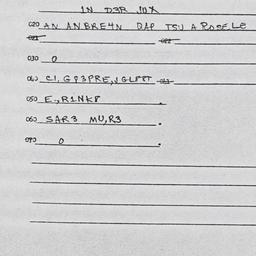 IN D3R JOX
020 AN ANBRE4N DAP TSU A ROSE.LE
030 0
040 CI, G83PRE,JGLPRT
050 E.,R1NK8
060 SAR3 MU,R3.
070 0.